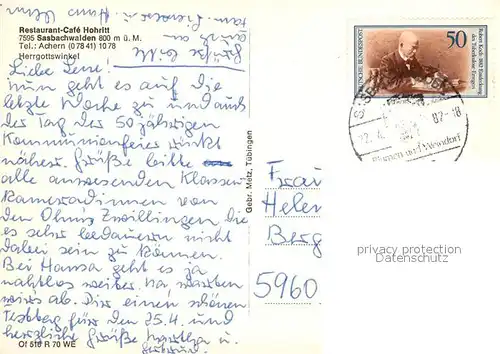 Restaurant-Café Hohritt
7595 Sasbachwalden 800 m ü. M.
Tel.: Achern (0 78 41) 10 78
Herrgottswinkel
Liebe Lene!
Nun geht es auf die
letzte Woche zu und auch
der Tag der 50 jährigen
Kommunionfeier rückt
näher. Grüße bitte
alle anwesenden Klassen
Kameradinnen von
den Ohnis Zwillingen die
es sehr bedauern nicht
dabei sein zu können.
Bei Hanna geht es ja
nahtlos weiter. Na warten
wir's ab. Dir einen schönen
Festtag für den 25.4. und
herzliche Grüße Martha u.
Of 516 R 70 WE
Gebr. Metz, Tübingen
DEUTSCHE BUNDESPOST
50
Robert Koch 1882 Entdeckung
des Tuberkulose-Erregers
82-18
Blumen und Weindorf
Frau
Helen
Berg
5960
privacy protection
Datenschutz